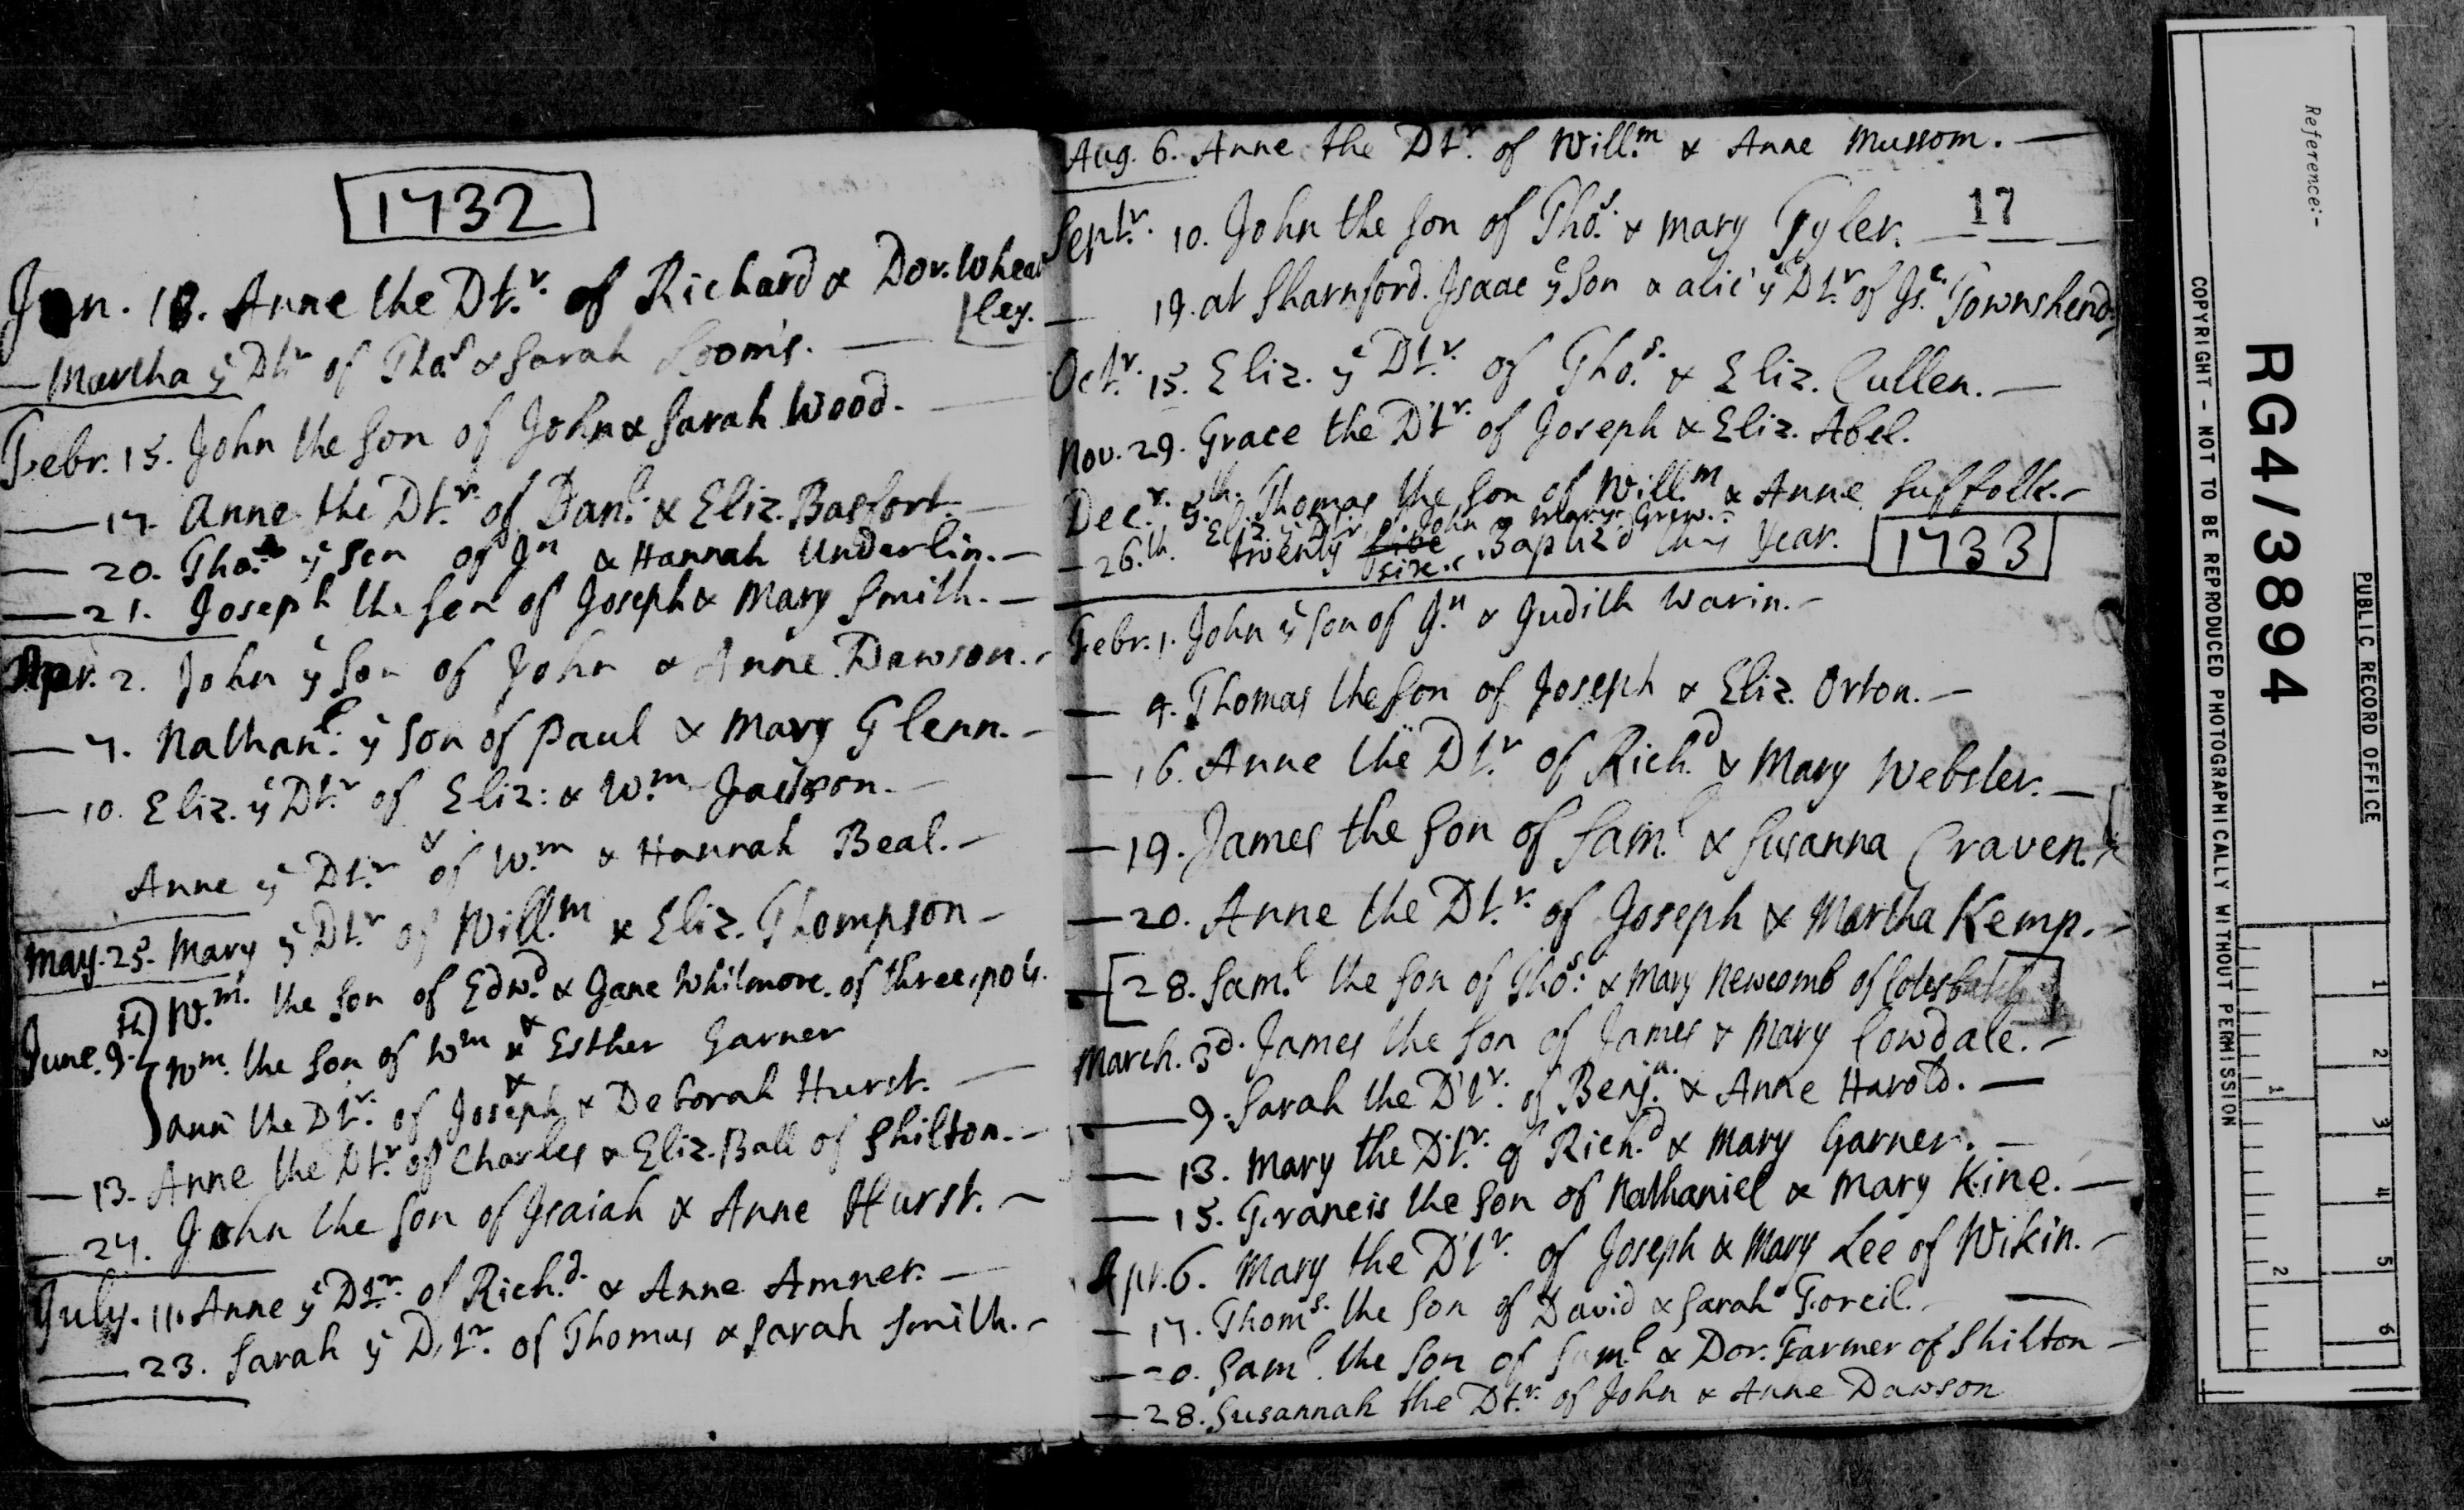 1732
Jan. 18. Anne the Dt.r of Richard & Dor. Wheat
[ley.
— Martha ye Dtr of Thos & Sarah Looms. —
Febr. 15. John the Son of John & Sarah Wood. —
— 17. Anne the Dt.r of Dan.l & Eliz. Basfort. —
— 20. Tho.s ye Son of Jn & Hannah Underlin. —
— 21. Joseph the Son of Joseph & Mary Smith. —
Apr. 2. John ye Son of John & Anne Dawson. -
— 7. Nathan.l: ye Son of Paul & Mary Glenn. -
— 10. Eliz. ye Dt.r of Eliz: & W.m Jackson. —
&
Anne ye Dt.r of W.m & Hannah Beal. —
May. 25. Mary ye Dt.r of Will.m & Eliz. Thompson —
June. 9. th W.m. the Son of Edw.d & Jane Whitmore. of three pots.
&
Wm. the Son of Wm & Esther Garner
&
Ann the Dt.r. of Joseph & Deborah Hurst. —
— 13. Anne the Dt.r of Charles & Eliz. Ball of Shilton. —
— 27. John the Son of Isaiah & Anne Hurst. —
July. 11. Anne ye Dt.r. of Rich.d. & Anne Amner. —
— 23. Sarah ye D.tr. of Thomas & Sarah Smith. -
Aug. 6. Anne the Dt.r of Will.m & Anne Mussom. —
17
Sept.r. 10. John the Son of Tho.s. & Mary Tyler. — — —
— 19. at Sharnford. Isaac ye Son & alic' ye Dt.r of Is.c Townshend.
Oct.r. 15. Eliz. ye Dt.r. of Tho.s. & Eliz. Cullen. —
Nov. 29. Grace the D't.r. of Joseph & Eliz. Abel.
Dec.r. 5.th. Thomas the Son of Will.m & Anne Suffolk. -
— 26.th. Eliz. ye Dtr of John & Mary Grew. -
twenty five six. Baptiz'd this Year.
1733
Febr. 1. John ye Son of J.n & Judith Warin. -
— 4. Thomas the Son of Joseph & Eliz. Orton. —
— 16. Anne the Dt.r of Rich.d & Mary Webster. —
— 19. James the Son of Sam.l & Susanna Craven.
— 20. Anne the Dt.r. of Joseph & Martha Kemp. -
— [28. Sam.l the Son of Tho.s: & Mary Newcomb of ]
March. 3d. James the Son of James & Mary Cowdale. -
— 9. Sarah the D't.r. of Benj.n. & Anne Harold. —
— 13. Mary the D't.r. of Rich.d & Mary Garner. —
— 15. Francis the Son of Nathaniel & Mary Kine. —
Apr. 6. Mary the D't.r. of Joseph & Mary Lee of Wikin. -
— 17. Thom.s. the Son of David & Sarah Foreil. - —
— 20. Sam.l. the Son of Sam.l & Dor. Farmer of Shilton —
— 28. Susannah the Dt.r. of John & Anne Dawson
Reference:-
RG4/3894
PUBLIC RECORD OFFICE
COPYRIGHT - NOT TO BE REPRODUCED PHOTOGRAPHICALLY WITHOUT PERMISSION
1 2 3 4 5 6
1 2